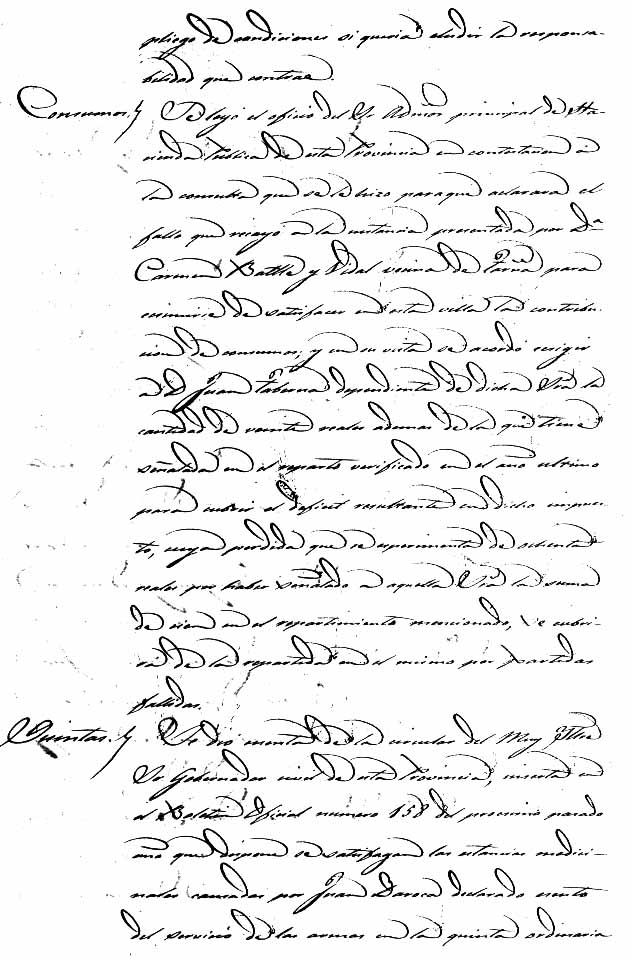 pliego de condiciones si queria eludir la responsa-
bilidad que contrae.
Consumos. Se leyó el oficio del Sr. Admor principal de Ha-
cienda Publica de esta Provincia en contestacion á
la consulta que se le hizo para que aclarara el
fallo que recayó á la instancia presentada por Dª
Carmen Batlle y Vidal vecina de para
eximirse de satisfacer en esta villa la contribu-
cion de consumos; y en su vista se acordó exigir
á D. Juan Taberna dependiente de dicha Srª la
cantidad de veinte reales ademas de la que tiene
señalada en el reparto verificado en el año ultimo
para cubrir el deficit resultante en dicho impues-
to, cuya perdida que se esperimenta de ochenta
reales por haber señalado á aquella Srª la suma
de cien en el repartimiento mencionado, se cubri-
rá de la repartida en el mismo por partidas
fallidas.
Quintas. Se dió cuenta de la circular del Muy Iltre
Sr Gobernador civil de esta Provincia, inserta en
el Boletin Oficial numero 158 del procsimo pasado
año que dispone se satisfagan las estancias medici-
nales causadas por Juan Daroca declarado esento
del servicio de las armas en la quinta ordinaria